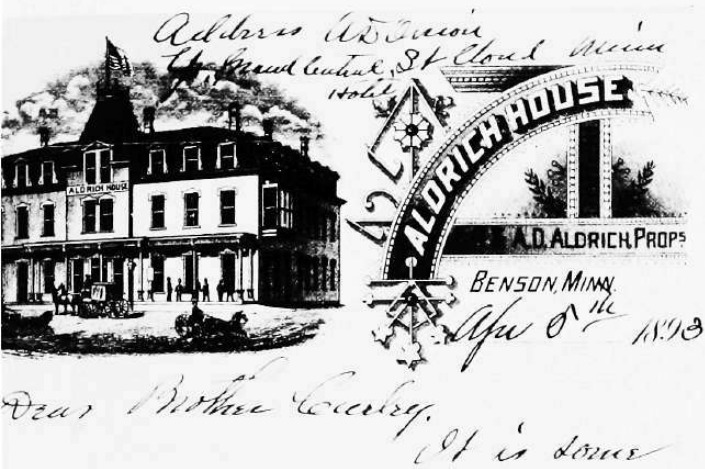 Address
Grand Central, St Cloud Minn
Hotel
ALDRICH HOUSE
ALDRICH HOUSE
A.D. ALDRICH, PROPS
BENSON, MINN.
8th 1893
Dear Brother Curley.
It is some